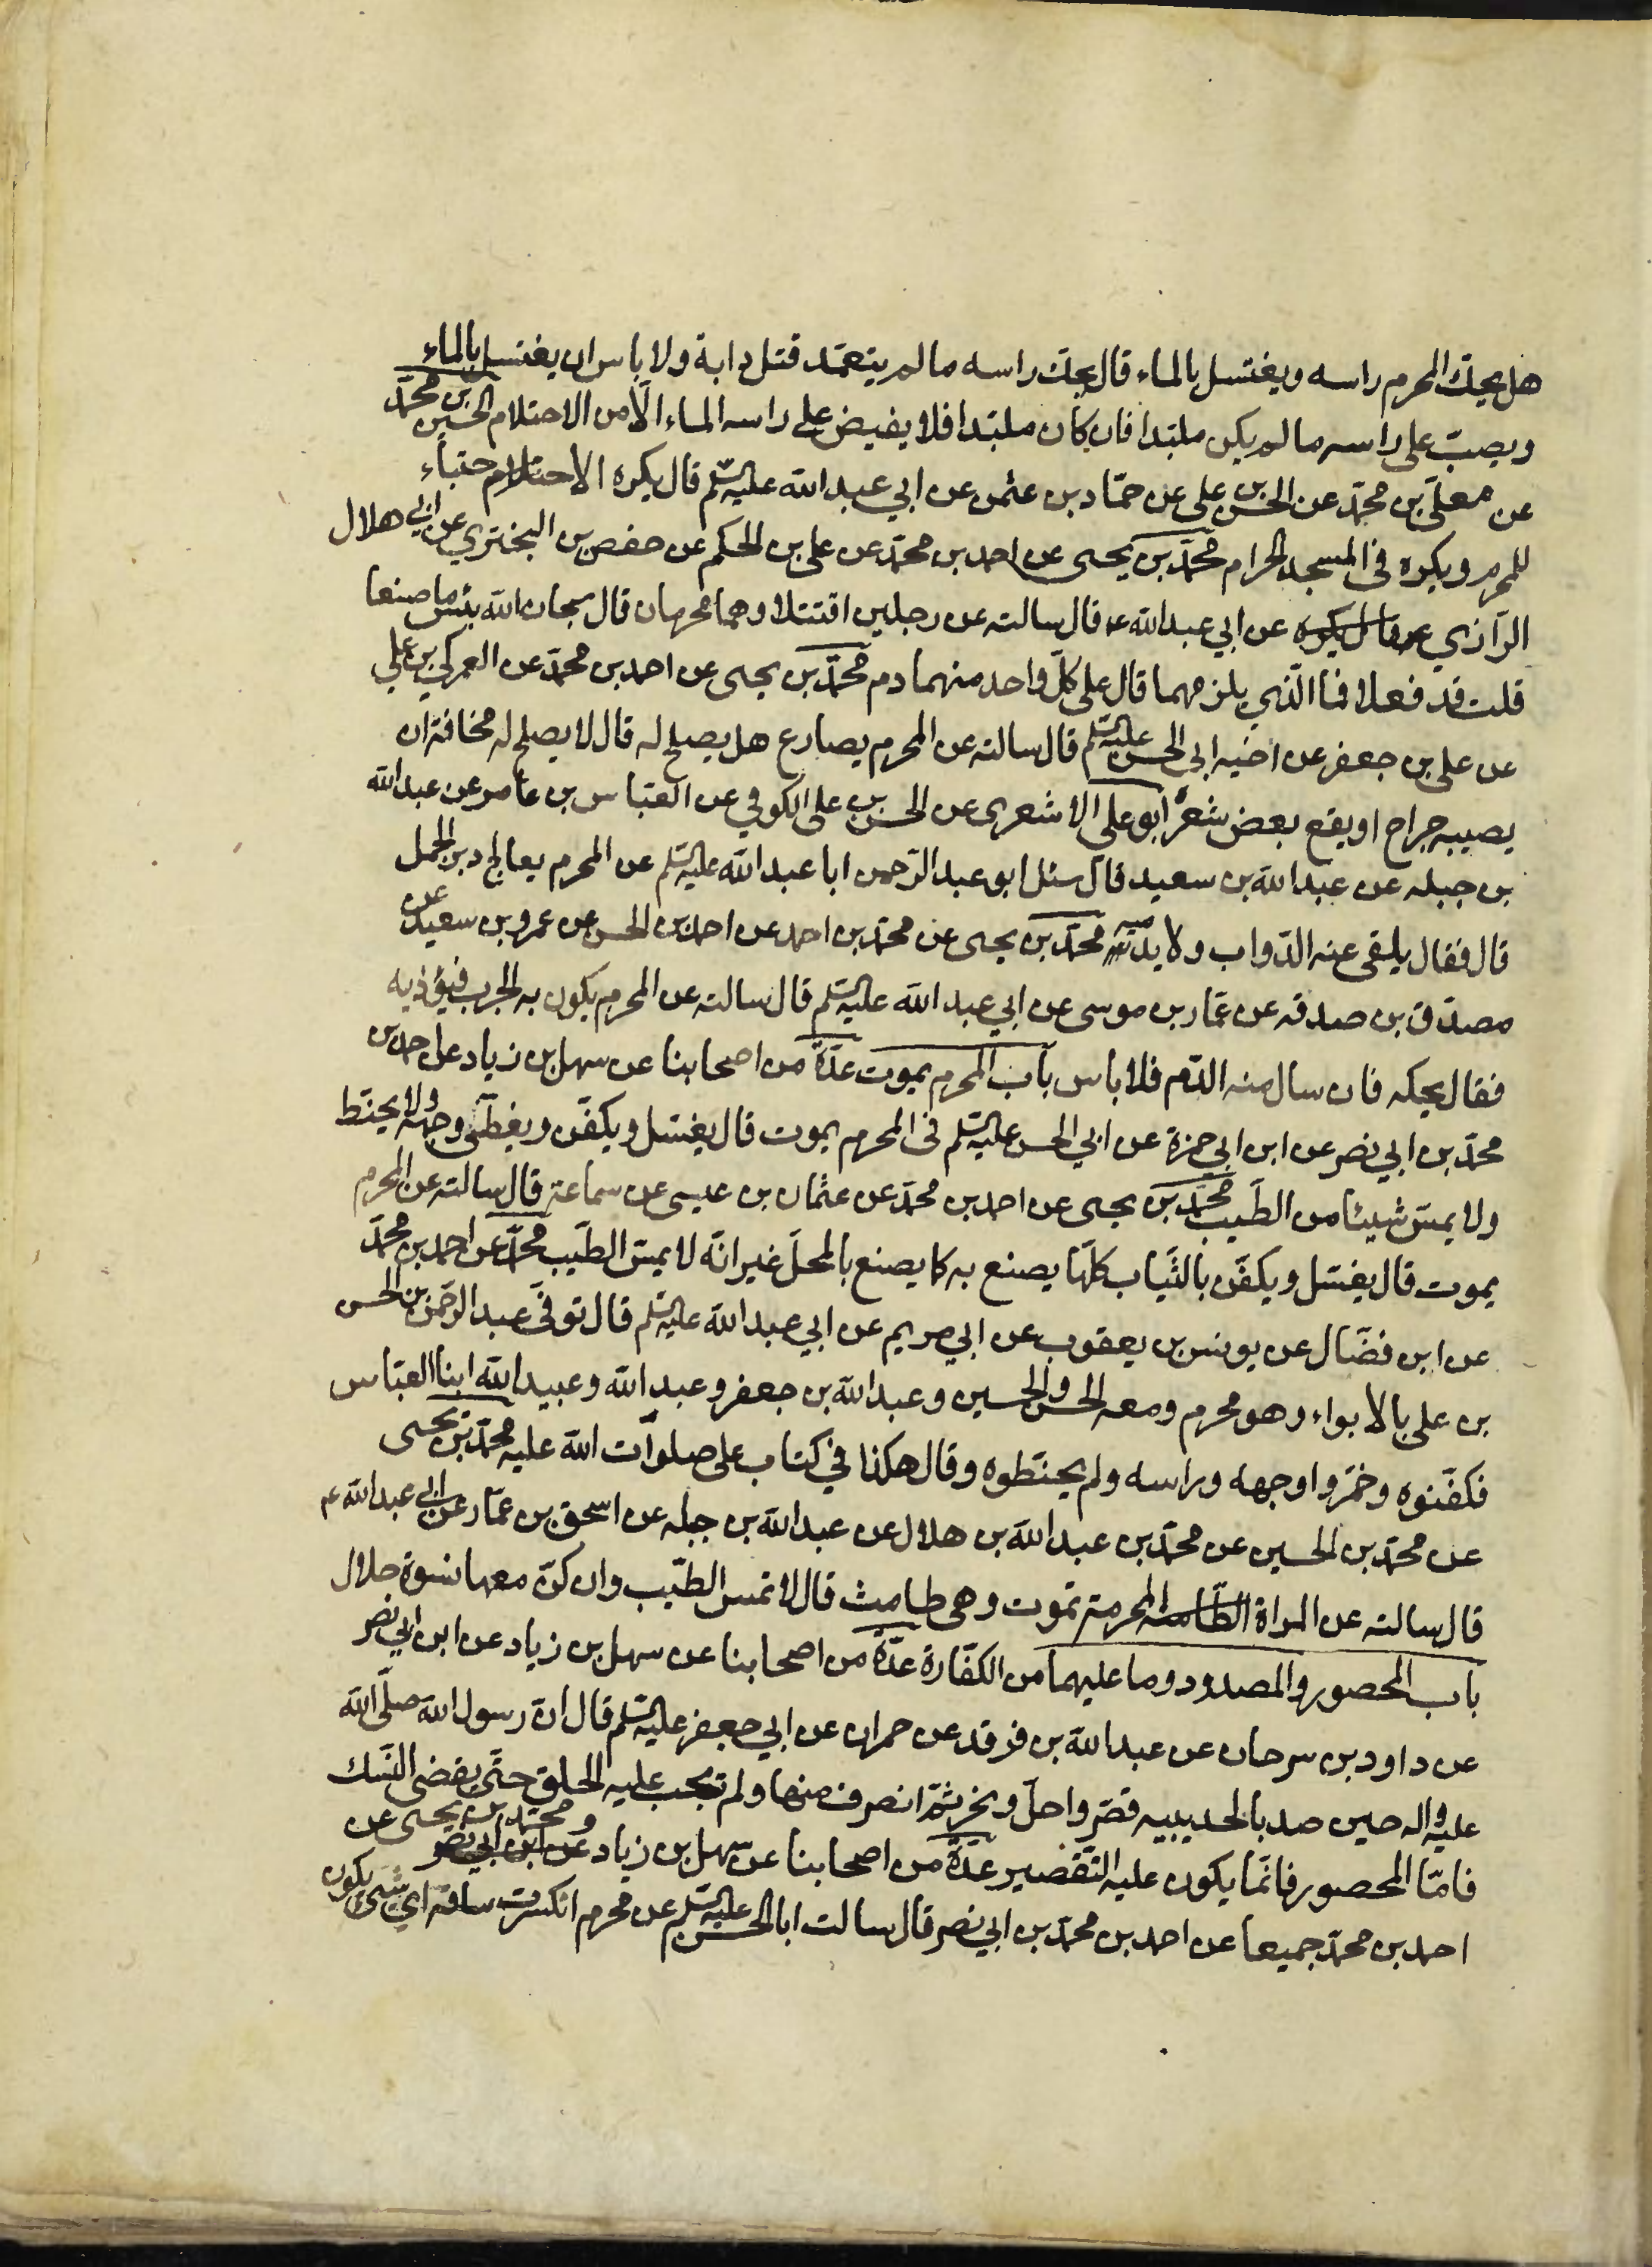 هل يحك المحرم راسه ويغتسل بالماء قال يحك راسه ما لم يتعمد قتل دابة ولا باس ان يغتسل بالماء
ويصب على راسه ما لم يكن ملبدا فان كان ملبدا فلا يفيض على راسه الماء الا من الاحتلام الحسين بن محمد
عن معلى بن محمد عن الحسن بن علي عن حماد بن عثمن عن ابي عبدالله عليه السلم قال يكره الاحتباء
للمحرم ويكره في المسجد الحرام محمد بن يحيى عن احمد بن محمد عن علي بن الحكم عن حفص بن البختري عن ابي هلال
الرازي عن ابي عبدالله ع قال سالته عن رجلين اقتتلا وهما محرمان قال سبحان الله بئس ما صنعا
قلت قد فعلا فما الذي يلزمهما قال على كل واحد منهما دم محمد بن يحيى عن احمد بن محمد عن العمركي بن علي
عن علي بن جعفر عن اخيه ابي الحسن عليه السلم قال سالته عن المحرم يصارع هل يصلح له قال لا يصلح له مخافة ان
يصيبه جراح او يقع بعض شعره ابو علي الاشعري عن الحسن بن علي الكوفي عن العباس بن عامر عن عبدالله
بن جبله عن عبدالله بن سعيد قال سئل ابو عبد الرحمن ابا عبدالله عليه السلم عن المحرم يعالج دبر الجمل
قال فقال يلقى عنه الدواب ولا يدميه محمد بن يحيى عن محمد بن احمد عن احمد بن الحسن عن عمرو بن سعيد عن
مصدق بن صدقه عن عمار بن موسى عن ابي عبدالله عليه السلم قال سالته عن المحرم يكون به الجرب فيؤذيه
فقال يحكه فان سال منه الدم فلا باس باب المحرم يموت عدة من اصحابنا عن سهل بن زياد عن احمد بن
محمد بن ابي نصر عن ابن ابي حمزة عن ابي الحسن عليه السلم في المحرم يموت قال يغسل ويكفن ويغطى وجهه ولا يحنط
ولا يمس شيئا من الطيب محمد بن يحيى عن احمد بن محمد عن عثمان بن عيسى عن سماعة قال سالته عن المحرم
يموت قال يغسل ويكفن بالثياب كلها يصنع به كما يصنع بالمحل غير انه لا يمس الطيب محمد عن احمد بن محمد
عن ابن فضال عن يونس بن يعقوب عن ابي مريم عن ابي عبدالله عليه السلم قال توفى عبد الرحمن بن الحسن
بن علي بالابواء وهو محرم ومعه الحسن والحسين وعبدالله بن جعفر وعبدالله وعبيدالله ابنا العباس
فكفنوه وخمروا وجهه وراسه ولم يحنطوه وقال هكذا في كتاب علي صلوات الله عليه محمد بن يحيى
عن محمد بن الحسين عن محمد بن عبدالله بن هلال عن عبدالله بن جبله عن اسحق بن عمار عن ابي عبدالله ع
قال سالته عن المراة المحرمة تموت وهي طامث قال لا تمس الطيب وان كن معها نسوة حلال
باب المحصور والمصدود وما عليهما من الكفارة عدة من اصحابنا عن سهل بن زياد عن ابن ابي نصر
عن داود بن سرحان عن عبدالله بن فرقد عن حمران عن ابي جعفر عليه السلم قال ان رسول الله صلى الله
عليه واله حين صد بالحديبيه قصر واحل ونحر ثم انصرف منها ولم تجب عليه الحلق حتى يقضي النسك
فاما المحصور فانما يكون عليه التقصير عدة من اصحابنا عن سهل بن زياد ومحمد بن يحيى عن
احمد بن محمد جميعا عن احمد بن محمد بن ابي نصر قال سالت ابا الحسن عليه السلم عن محرم انكسرت ساقه اي شيء يكون